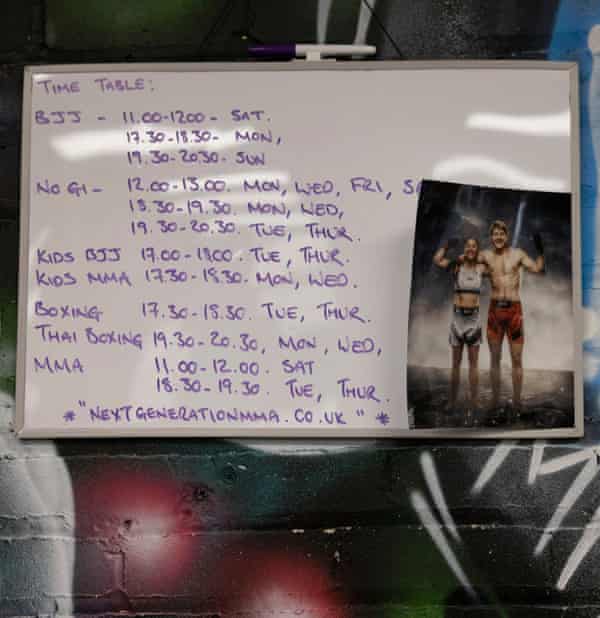 TIME TABLE:
BJJ - 11.00-1200 - SAT.
17.30-18.30- MON,
19.30-20.30- SUN
NO GI - 12.00-13.00. MON, WED, FRI,
18.30-19.30. MON, WED,
19.30-20.30. TUE, THUR.
KIDS BJJ 17.00-1800. TUE, THUR.
KIDS MMA 17.30-18.30. MON, WED.
BOXING 17.30-18.30. TUE, THUR.
THAI BOXING 19.30-20.30, MON, WED,
MMA 11.00-12.00. SAT
18.30-19.30. TUE, THUR.
* "NEXTGENERATIONMMA.CO.UK" *